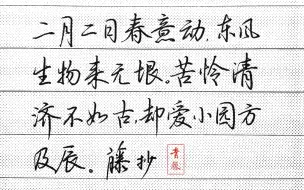 二月二日春意动,东风
生物来无垠。苦怜清
济不如古,却爱小园方
及辰。藤抄